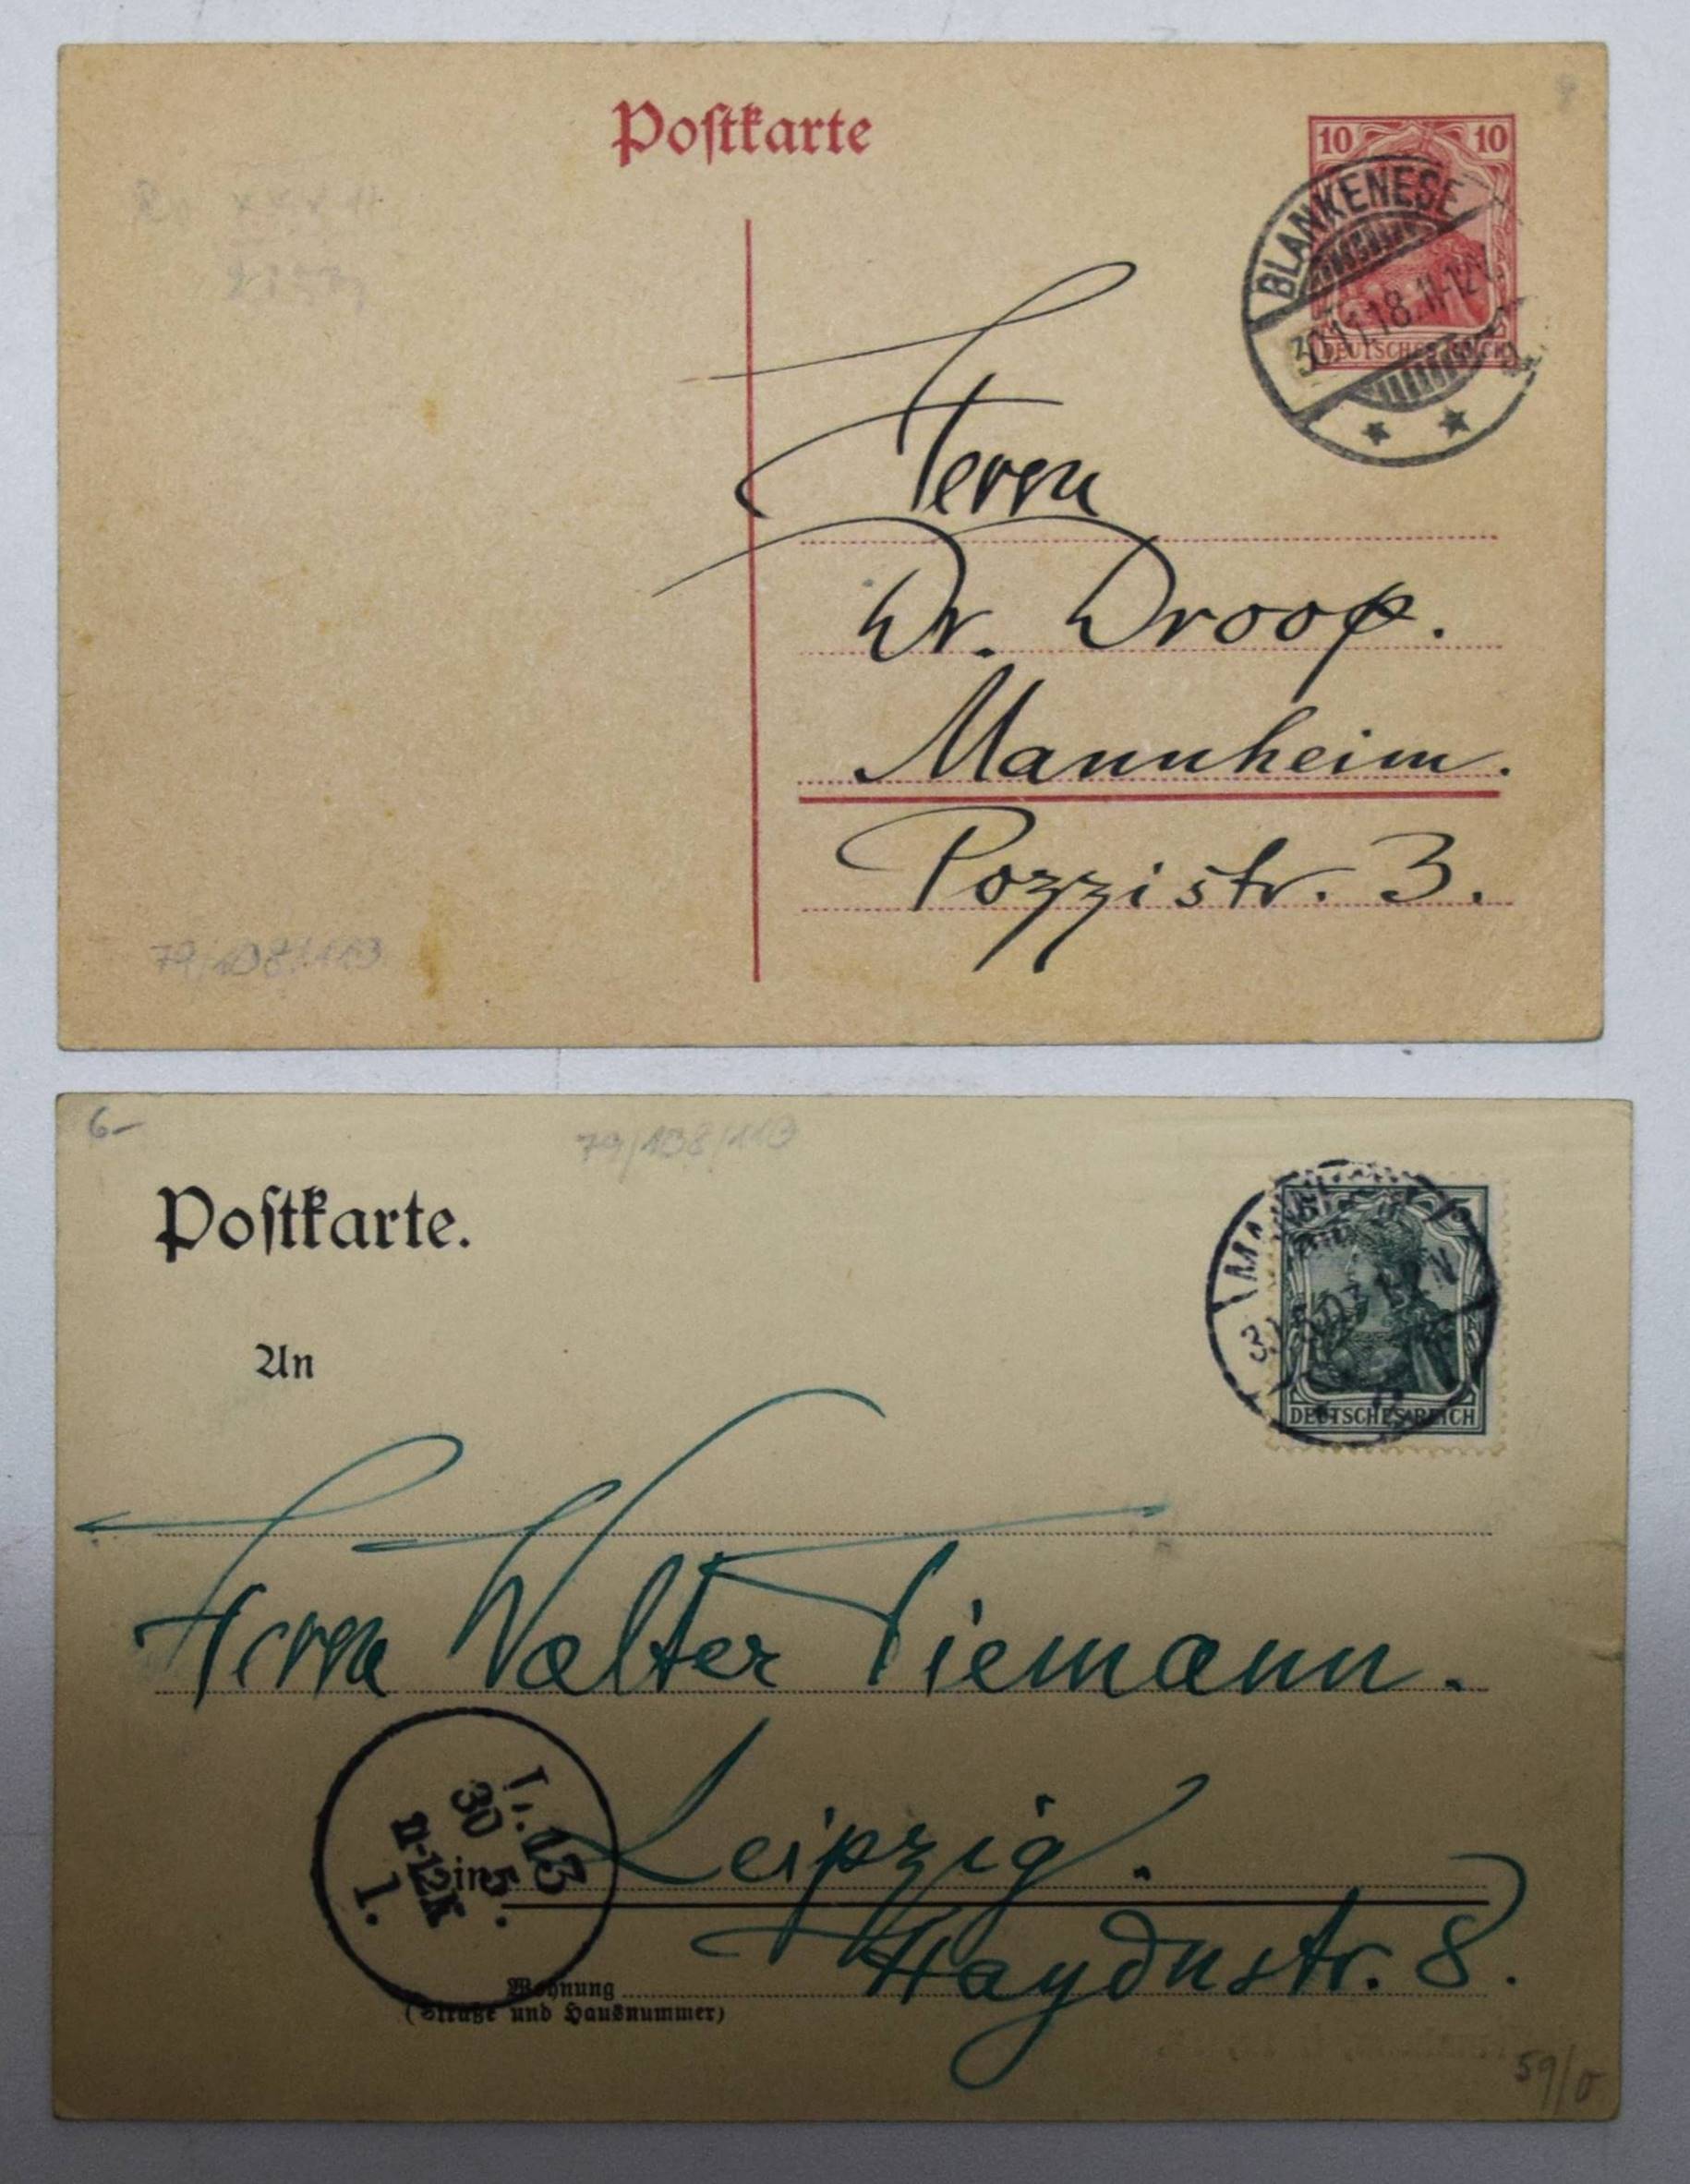 Postkarte
10 10
BLANKENESE
30.11.18.11-12V.
DEUTSCHES REICH
Herrn
Dr. Droop.
Mannheim.
Pozzistr. 3.
79/108/113
6-
79/108/113
Postkarte.
5
DEUTSCHES REICH
An
Herrn Walter Tiemann.
L. 13
30 5.
11-12V
1.
in Leipzig.
Wohnung Haydnstr. 8.
(Straße und Hausnummer)
59/0